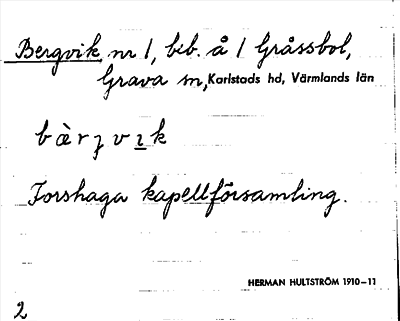 Bergvik, nr 1, beb. å 1 Gråssbol,
Grava sn, Karlstads hd, Värmlands län
bὲrʒvɪk
Forshaga kapellförsamling.
HERMAN HULTSTRÖM 1910-11
2